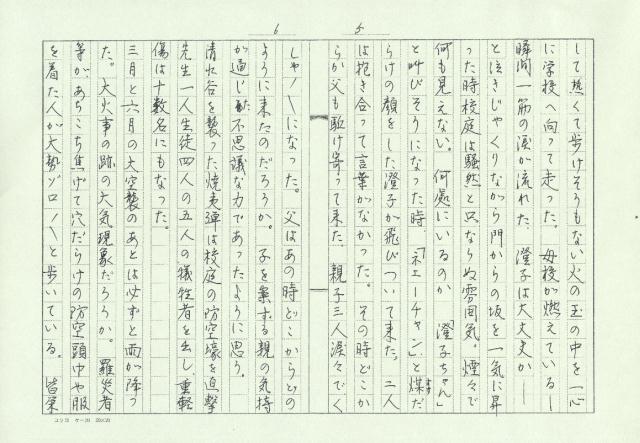 6
5
して熱くて歩けそうもない火の玉の中を一心
に学校へ向って走った。母校が燃えている―
瞬間一筋の涙が流れた。澄子は大丈夫か――
と泣きじゃくりながら門からの坂を一気に昇
った時校庭は騒然と只ならぬ雰囲気。煙々で
何も見えない。何処にいるのか「澄子ちゃん」
と叫びそうになった時、「ネエーチャン」と煤だ
らけの顔をした澄子が飛びついて来た。二人
は抱き合って言葉がなかった。その時どこか
らか父も駈け寄って来た。親子三人涙々でく
しゃ/\になった。父はあの時どこからどの
ように来たのだろうか。子を案ずる親の気持
が通じた不思議な力であったように思う。
清水谷を襲った焼夷弾は校庭の防空壕を直撃
先生一人生徒四人の五人の犠牲者を出し、重軽
傷は十数名にもなった。
三月と六月の大空襲のあとは必ずと雨が降っ
た。大火事の跡の大気現象だろうか。羅災者
等が、あちこち焦げて穴だらけの防空頭巾や服
を着た人が大勢ゾロ/\と歩いている。皆栄
コクヨ ケ-20 20×20